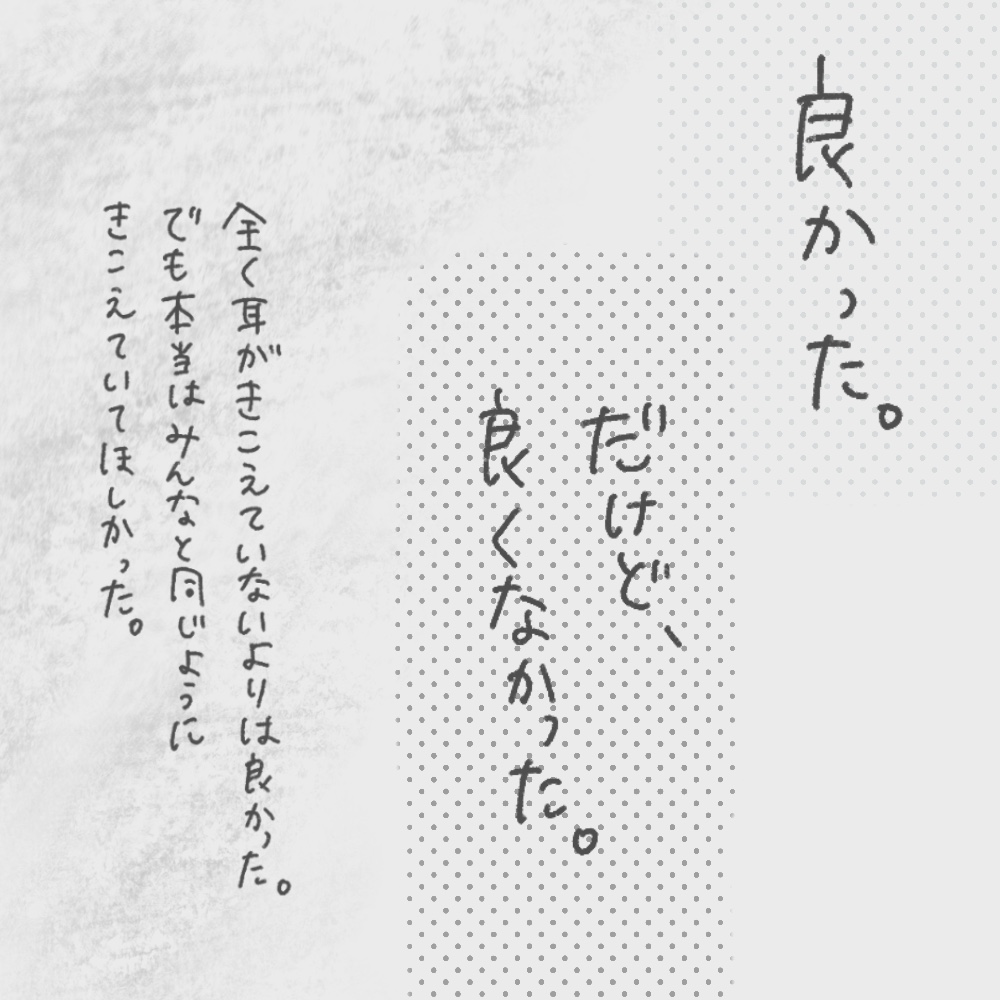 良かった。
だけど、
良くなかった。
全く耳がきこえていないよりは良かった。
でも本当はみんなと同じように
きこえていてほしかった。